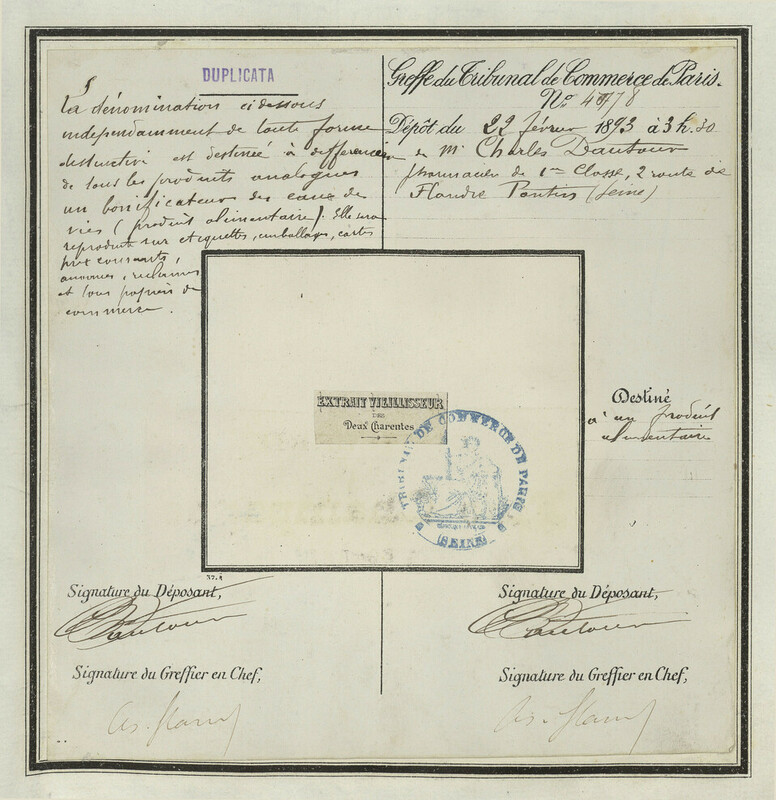 DUPLICATA
La dénomination ci dessous
independamment de toute forme
distinctive est destinée à differencier
de tous les produits analogues
un bonificateur des eaux de
vies (produit alimentaire). Elle sera
reproduite sur etiquettes, emballages, cartes
prix courants,
annonces, reclames
et tous papiers de
commerce.
Greffe du Tribunal de Commerce de Paris.
No.
Dépôt du 22 février 1893 à 3 h. 30
de Mr Charles Dautour
pharmacien de 1re Classe, 2 route de
Flandre Pantin (Seine)
EXTRAIT VIEILLISSEUR
DES
Deux Charentes
TRIBUNAL DE COMMERCE DE PARIS
(SEINE)
Destiné
à un produit
alimentaire
Signature du Déposant,
Dautour
Signature du Greffier en Chef,
Signature du Déposant,
Dautour
Signature du Greffier en Chef,